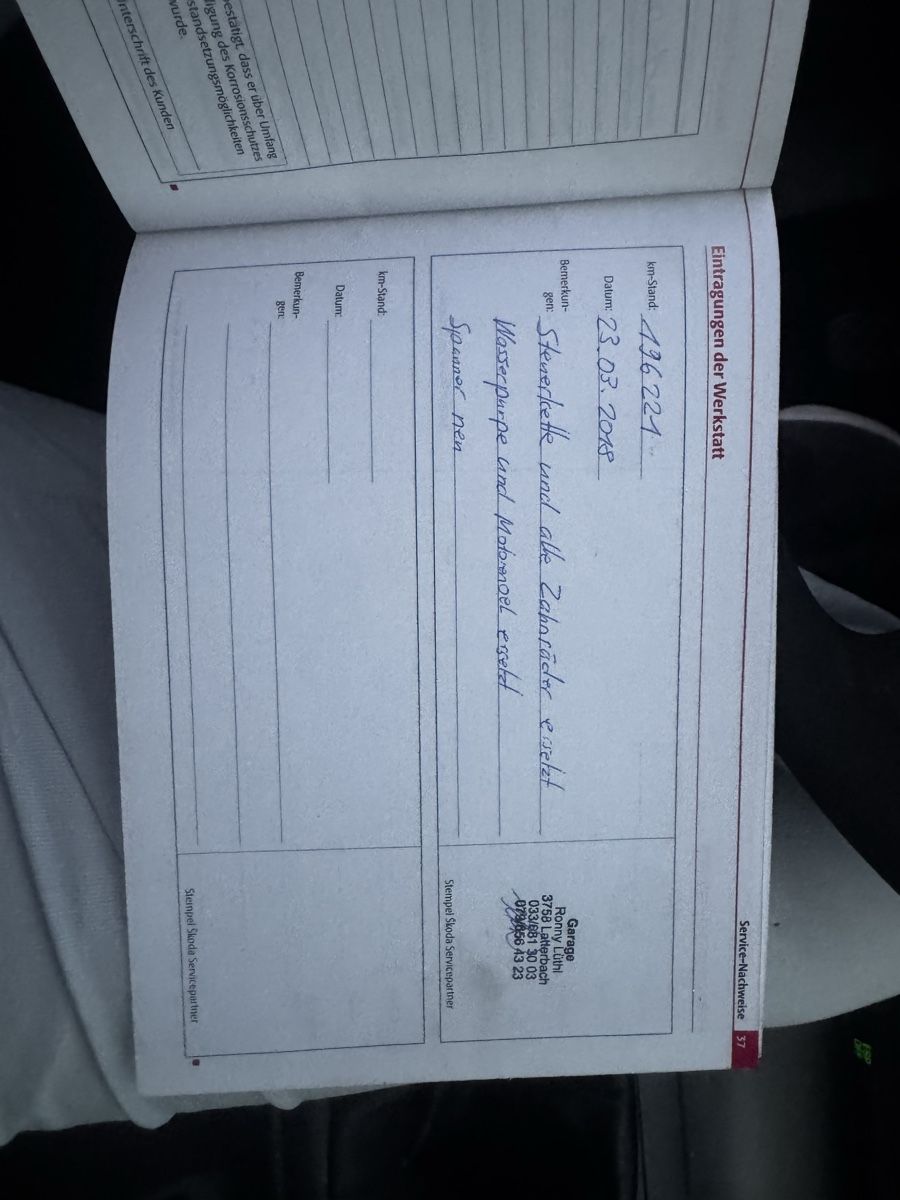 estätigt, dass er über Umfang
igung des Korrosionsschutzes
standsetzungsmöglichkeiten
wurde.
nterschrift des Kunden
Service-Nachweise 37
Eintragungen der Werkstatt
km-Stand: 196221
Datum: 23.03.2018
Bemerkun-
gen: Steuerkette und alle Zahnräder ersetzt
Wasserpurpe und Motorenoel ersetzt
Spanner neu
Garage
Ronny Lüthi
3758 Latterbach
033/681 30 03
079/656 43 23
Stempel Skoda Servicepartner
km-Stand:
Datum:
Bemerkun-
gen:
Stempel Skoda Servicepartner